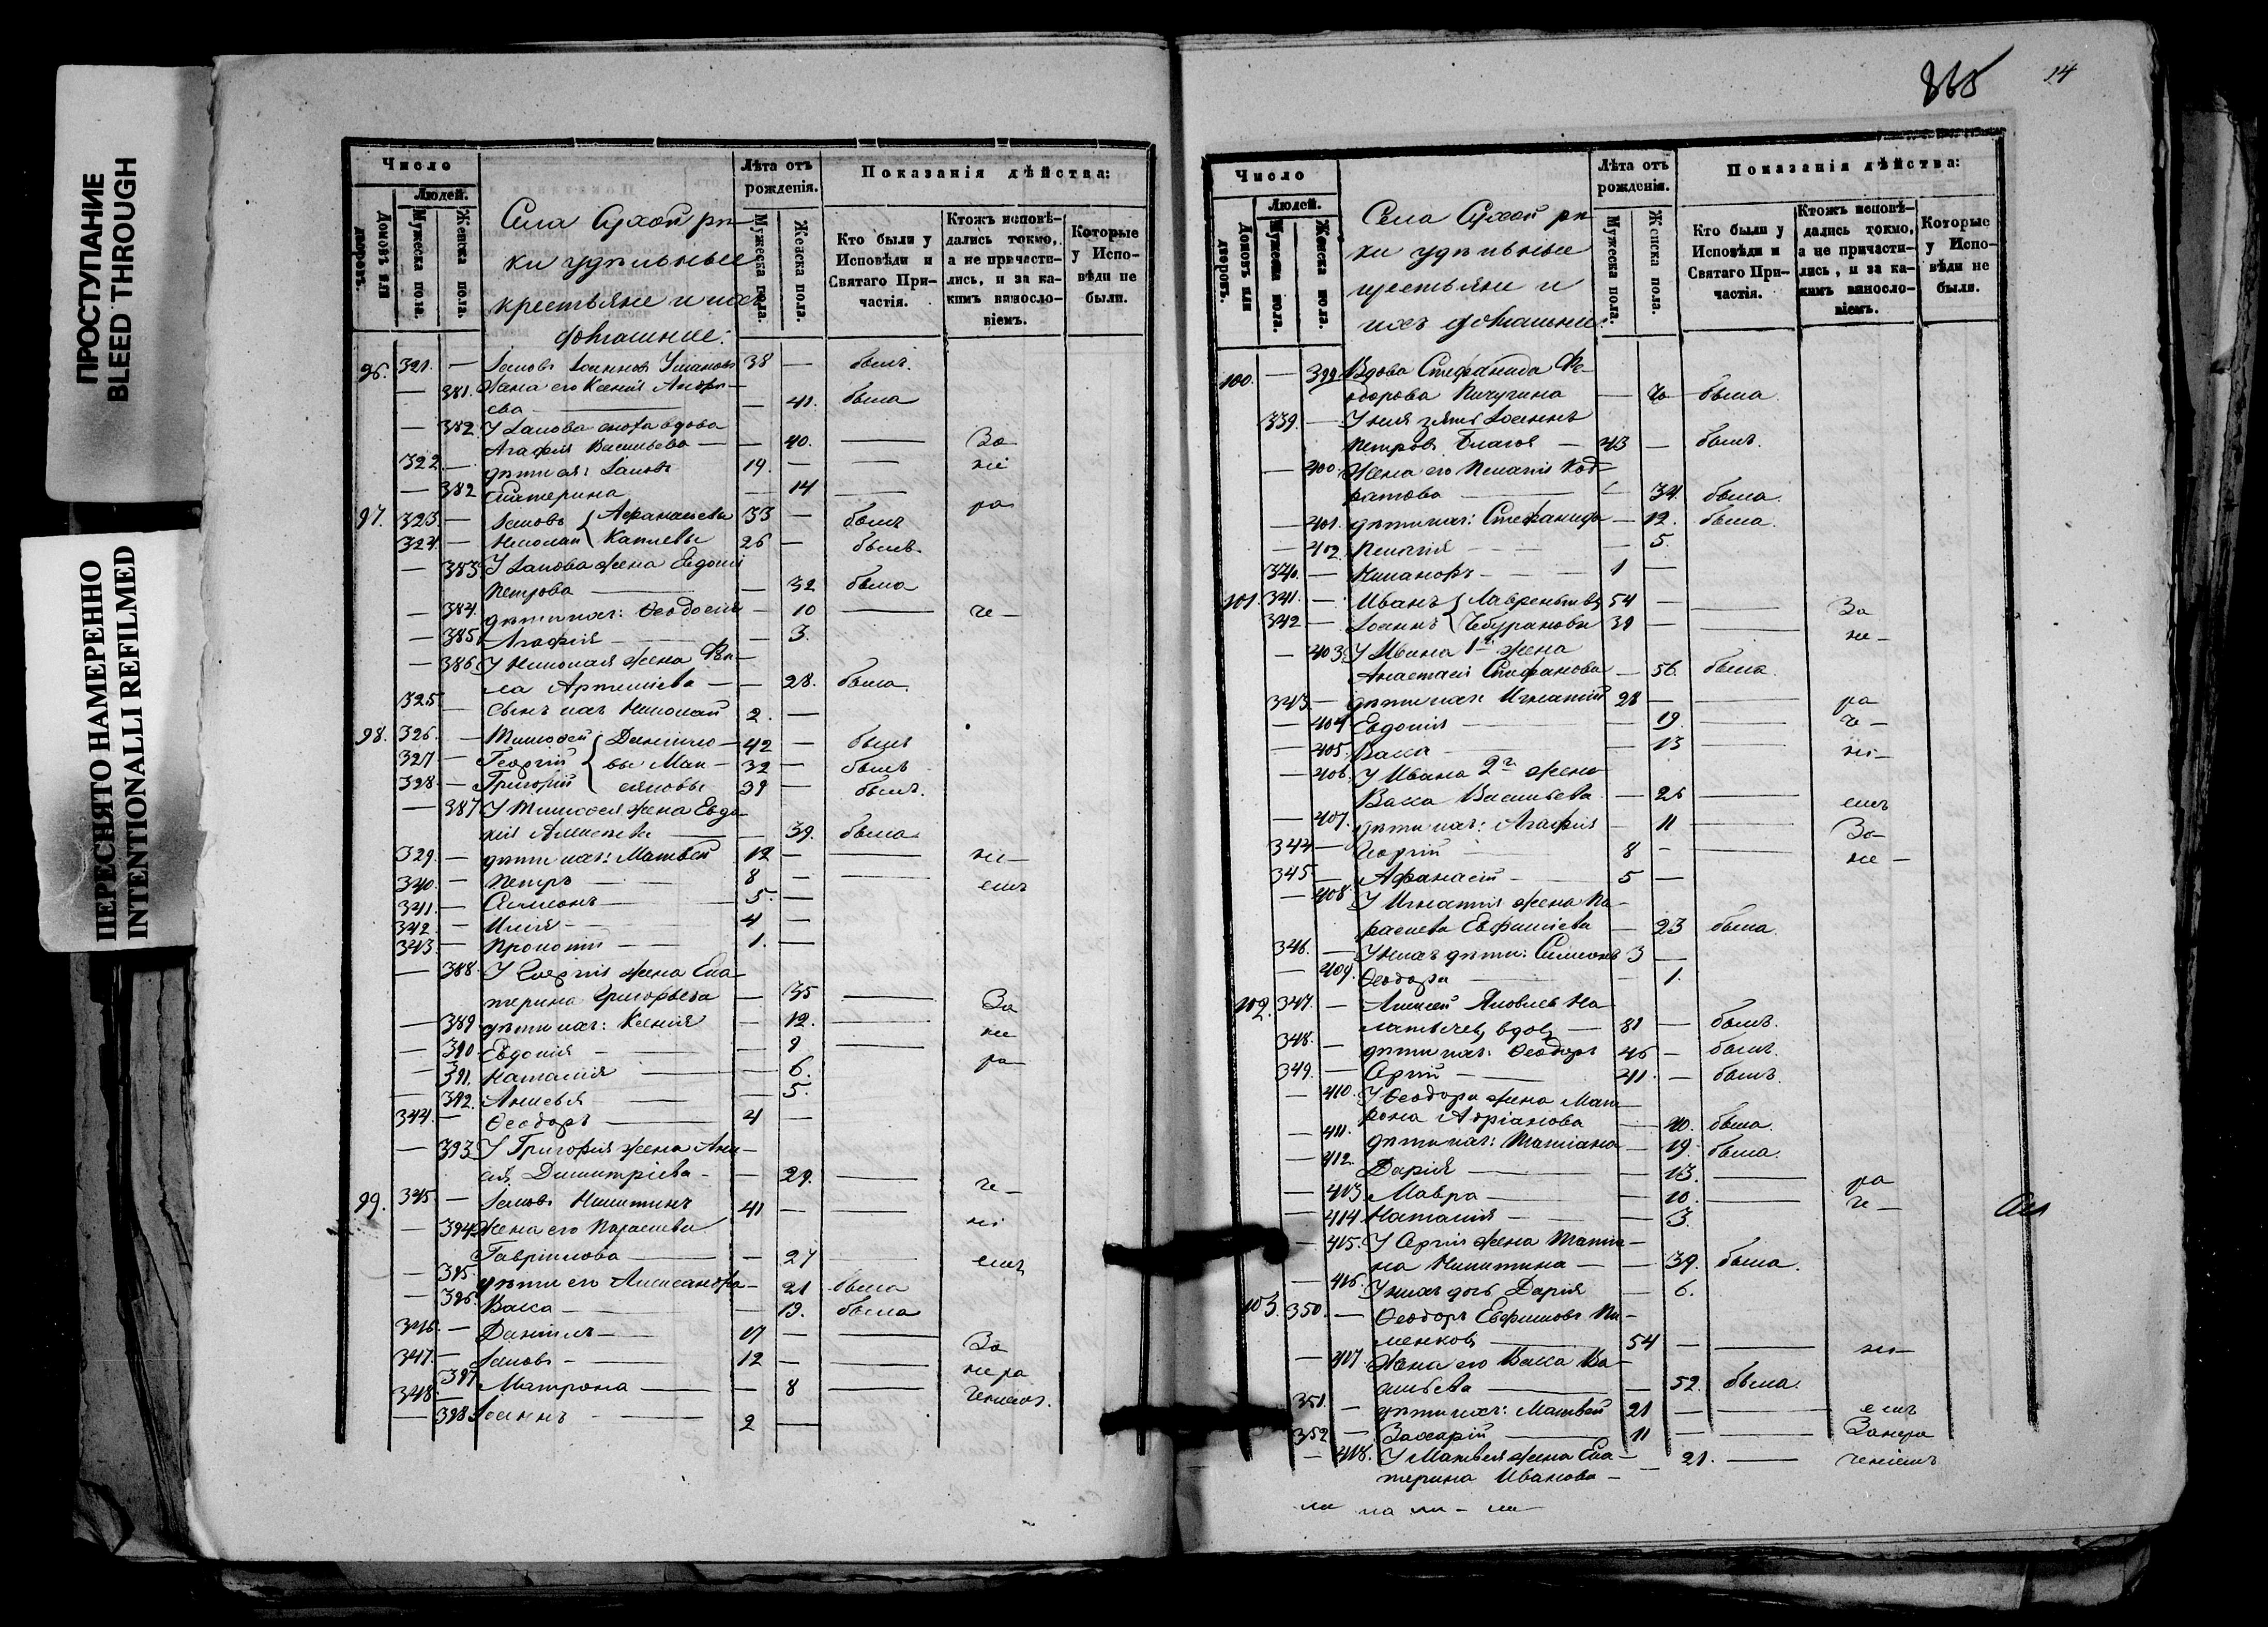 ПРОСТУПАНИЕ
BLEED THROUGH
ПЕРЕСНЯТО НАМЕРЕННО
INTENTIONALLI REFILMED
Число
Людей.
Домовъ или дворовъ.
Мужеска пола.
Женска пола.
Села Сухой рѣ-
ки удѣльные
крестьяне и ихъ
домашние:
Лѣта отъ рожденія.
Мужеска пола.
Женска пола.
Показанія дѣйства:
Кто были у Исповѣди и Святаго Причастія.
Ктожъ исповѣдались токмо, а не причастились, и за какимъ винословіемъ.
Которые у Исповѣди не были.
96. 321. — Іаковъ Іоанновъ 38 — былъ.
— 381. Жена его Ксенія Андре-
ева — — 41. была
— 382 У Іакова сноха вдова
Агафія Васильева — — 40. — За
322 — дѣти ея: Іаковъ 19. — — не
— 382 Екатерина — 14 —
97. 323 — Іаковъ Афанасьевы 33 — былъ ра
324 — Николай 26 — былъ.
— 383 У Іакова жена Евдокія
Петрова — — 32 была
— 384 дѣти ихъ: Ѳеодосія — 10 — че —
— 385 Агафія — — 3.
— 386 У Николая жена Ѳек-
ла Артемиева — — 28. была.
325 — Сынъ ихъ Николай 2. —
98. 326. — Тимофей Данило- 42 — былъ
327 — Георгій вы 32 — былъ
328 — Григорій 39 — былъ.
— 387 У Тимофея жена Евдо-
кія Алексеева — — 39. была
329. — дѣти ихъ: Матвей 12 — — ні —
340. — Петръ — 8 — — емъ
341. — Симеонъ — 5. —
342 — Илія — 4 —
343 — Прокопій — 1. —
— 388 У Георгія жена Ека-
терина Григорьева — 35 — За
— 389 дѣти ихъ: Ксенія — 12. — не
— 390 Евдокія — — 9 — ра —
— 391. Наталия — — 6.
— 392. Анисья — 5.
344. — Ѳеодоръ — 4 —
— 393 У Григорія жена
Димитріева — — 29. — че —
99. 345 — Іаковъ Никитинъ 41 — — ні
— 394 Жена его Параскева
Гавріилова — — 27 — емъ
— 395. дѣти его Александра — 21 была
— 396. Васса — — 19. была
346. — Даніилъ — 17 — — За
347. — Іаковъ — 12 — — не ра
397 Матрона — — 8 — ченіемъ.
348. —
— 398 Іоаннъ — 2 —
14
Число
Людей.
Домовъ или дворовъ.
Мужеска пола.
Женска пола.
Села Сухой рѣ
ки удѣльные
крестьяне и
ихъ домашние:
Лѣта отъ рожденія.
Мужеска пола.
Женска пола.
Показанія дѣйства:
Кто были у Исповѣди и Святаго Причастія.
Ктожъ исповѣдались токмо, а не причастились, и за какимъ винословіемъ.
Которые у Исповѣди не были.
100. — 399 Вдова Стефанида Ѳе-
одорова Пичугина — 70 — была.
339. — У нея зять Іоаннъ
Петровъ — 43 — былъ.
— 400 Жена его Пелагія Код-
ратова — 34. была.
— 401. дѣти ихъ: Стефанида — 12. была.
— 402 Пелагія — — 5.
340. — Никаноръ — 1 —
101. 341. — Иванъ Лаврентьевы 54 — — За
342 — Іоаннъ 39 — — не —
— 403. У Ивана 1я жена
Анастасія Стефанова — 56. была.
343 — дѣти ихъ Игнатій 28 — — ра
— 404 Евдокія — 19. — че —
— 405. Васса — — 13 — ні —
— 406. У Ивана 2я жена
Васса Васильева — 26 — емъ
— 407. дѣти ихъ: Агафія — 11 — За —
344 — Георгій — 8 — — не —
345 — Афанасій — 5 —
— 408 У Игнатія жена Па-
раскева Евфимиева — 23 была.
346. — У нихъ дѣти: Симеонъ 3 —
— 409. Ѳеодора — 1.
102. 347. — Алексей Яковлев
вдов — 81 — былъ.
348. — дѣти ихъ: Ѳеодоръ 46 — былъ.
349. — Сергій — 41. — былъ.
— 410. У Ѳеодора жена Мат-
рона Адріанова — 40. была.
— 411. дѣти ихъ: Татіана — 19. была.
— 412. Дарія — — 13. — ра
— 413 Мавра — — 10. — че —
— 414 Наталия — — 3.
— 415. У Сергія жена Татіа-
на Никитина — — 39. была.
— 416. У нихъ дочь Дарія — 6.
103. 350. — Ѳеодоръ Евфимовъ Пи-
менков — 54 — — ні —
— 417 Жена его Васса Ва-
сильева — — 52. была.
351. — дѣти ихъ: Матвей 21 — — емъ
352 — Захарій — 11 — — Занера
— 418. У Матвея жена Ека-
терина Иванова — — 21. — ченіемъ